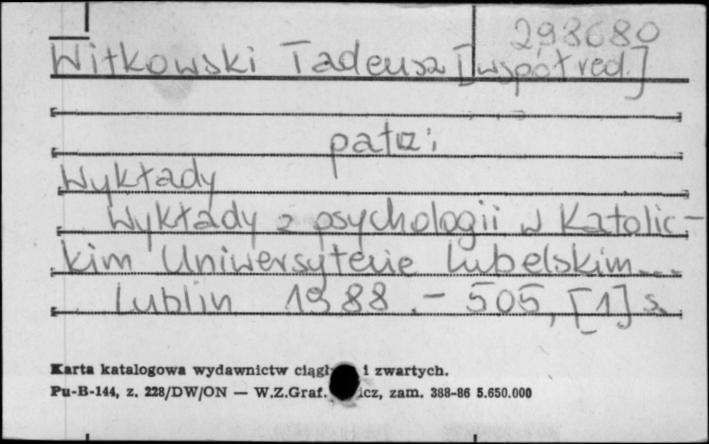 293680
Witkowski Tadeusz [współred.]
patrz:
Wykłady
Wykłady z psychologii w Katolic-
kim Uniwersytecie Lubelskim...
Lublin 1988 .- 505, [1] s.
Karta katalogowa wydawnictw i zwartych.
Pu-B-144, z. 228/DW/ON — W.Z.Graf. zam. 388-86 5.650.000